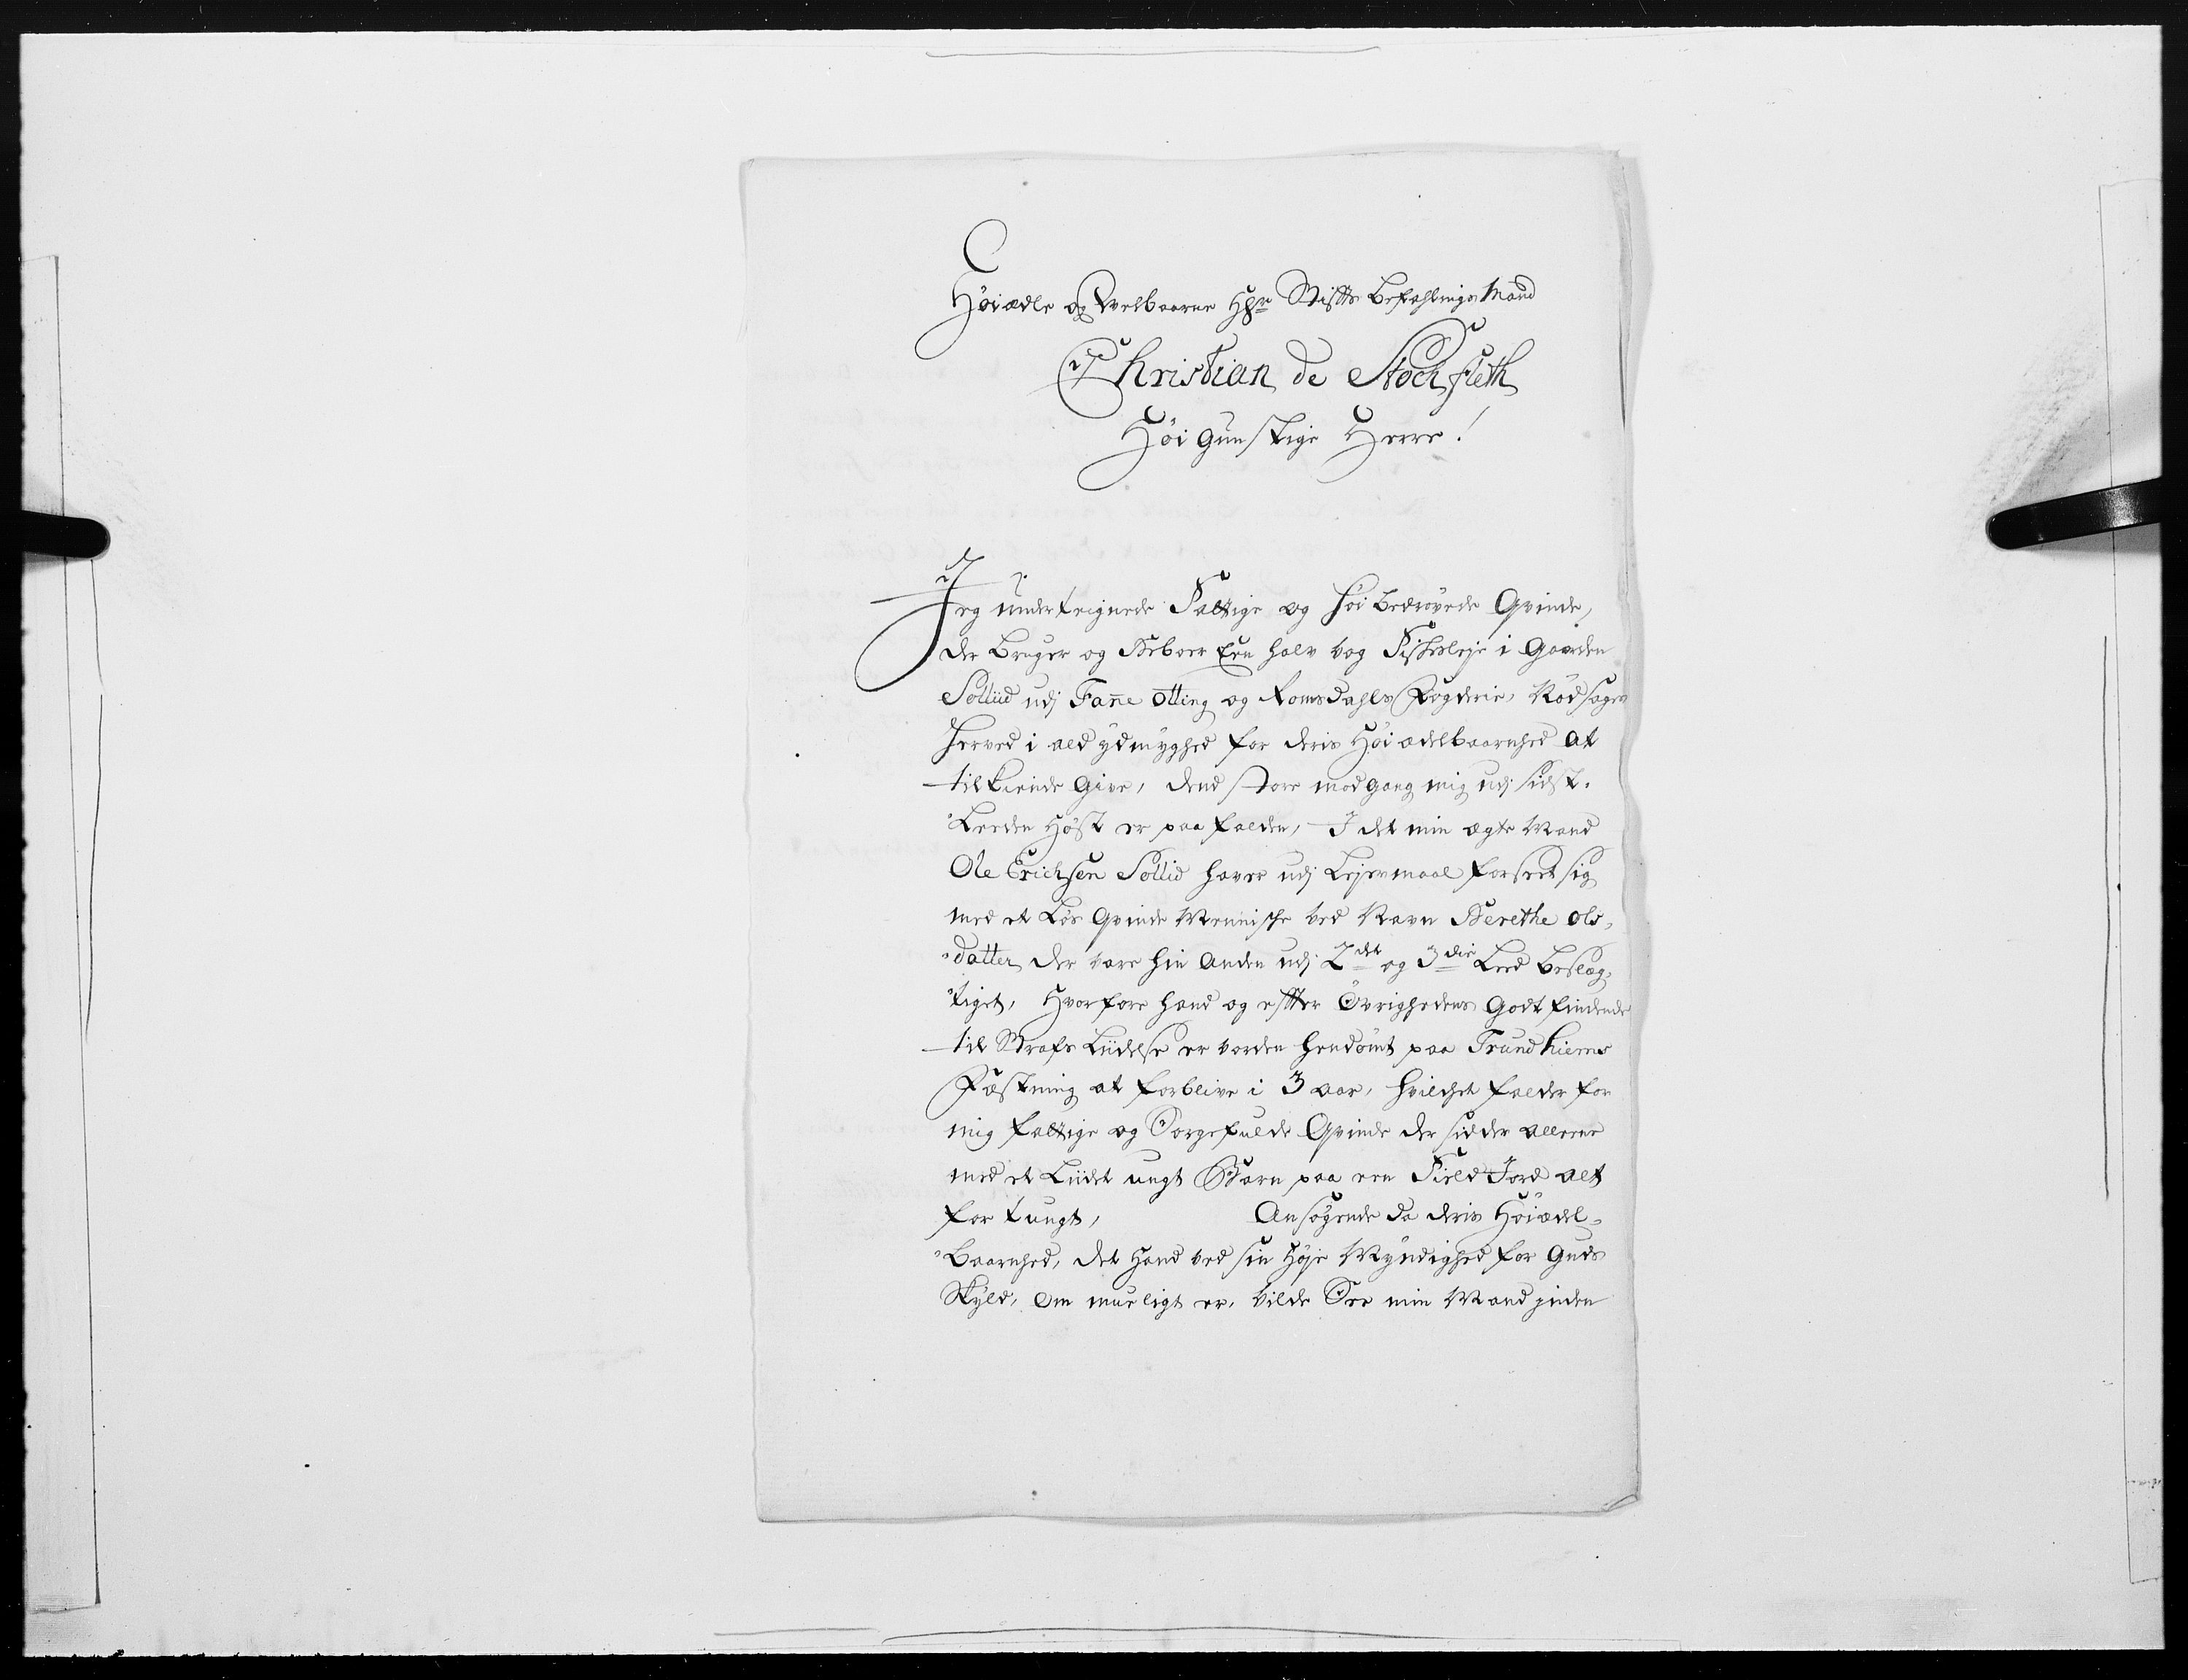 Høiædle og Welbaarne Hr Stifts Befahlings Mand
Christian de Stochfleth
Høigunstige Herre!
Jeg underteignede Fattige og høi bedrøvede Qvinde,
der bruger og Beboer Een halv vog Fiskesleje i Gaarden
Søllid udj Fan̄e Otting og Romsdahls Fogderie, Nødsages
herved i ald ydmyghed for deris Høiædelbaarnhed at
tilkiende give, dend store modgang mig udj sidst-
leeden Høst er paafalden, I det min ægte Mand
Ole Erichsen Søllid haver udj Lejermaal forseet sig
med et Løs Qvinde Menniske ved Navn Berethe Ols-
datter, der vare hin anden udj 2det og 3die Leed beslæg-
tiget, Hvorfore hand og effter Øvrighedens Godtfindende
til Strafs Liidelse er vorden hendømt paa Trundhiems
Fæstning at forblive i 3 aar, hvilchet falder for
mig fattige og Sorgefulde Qvinde der sidder alleene
med et Liidet ungt Barn paa een Field Jord alt
for tungt, Ansøgende da deris Høiædel-
Baarnhed, det Hand ved sin Høje Myndighed for Guds
Skyld, om mueligt er, vilde See min Mand inden